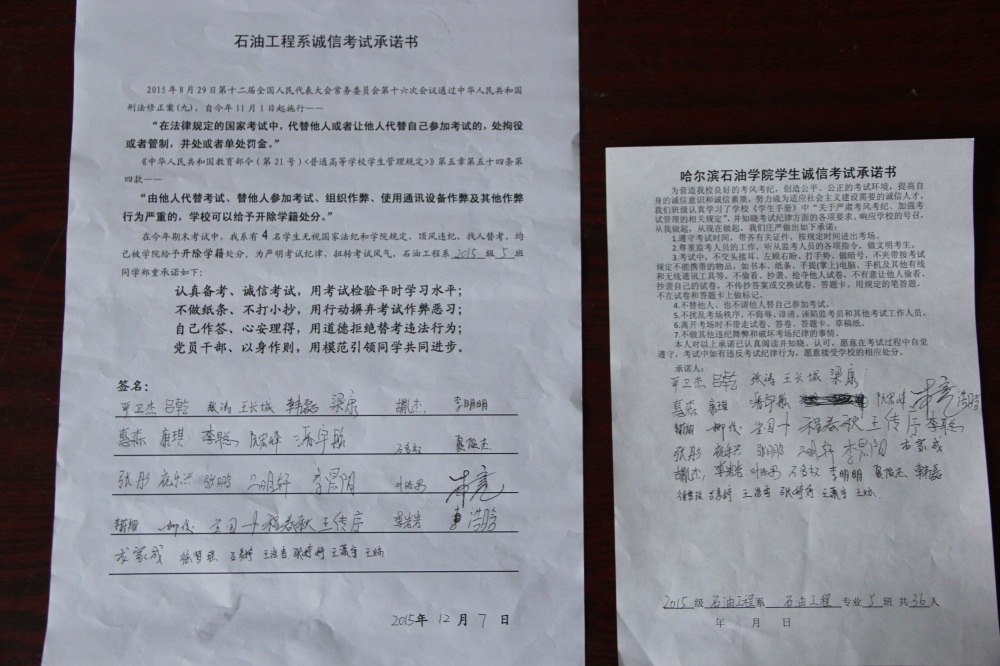 石油工程系诚信考试承诺书
2015年8月29日第十二届全国人民代表大会常务委员会第十六次会议通过中华人民共和国
刑法修正案(九),自今年11月1日起施行——
“在法律规定的国家考试中,代替他人或者让他人代替自己参加考试的,处拘役
或者管制,并处或者单处罚金。”
《中华人民共和国教育部令(第21号)<普通高等学校学生管理规定>》第五章第五十四条第
四款——
“由他人代替考试、替他人参加考试、组织作弊、使用通讯设备作弊及其他作弊
行为严重的,学校可以给予开除学籍处分。”
在今年期末考试中,我系有4名学生无视国家法纪和学院规定,顶风违纪,找人替考,均
已被学院给予开除学籍处分。为严明考试纪律,扭转考试风气,石油工程系2015级5班
同学郑重承诺如下:
认真备考、诚信考试,用考试检验平时学习水平;
不做纸条、不打小抄,用行动摒弃考试作弊恶习;
自己作答、心安理得,用道德拒绝替考违法行为;
党员干部、以身作则,用模范引领同学共同进步。
签名:
平卫杰 吕乾 张涛 王长城 韩磊 梁康 李明明
惠森 康琪 李聪
张彤 张鹏 李昊阳
王传序
2015年12月7日
哈尔滨石油学院学生诚信考试承诺书
为营造我校良好的考风考纪,创造公平、公正的考试环境,提高自
身的诚信意识和诚信素质,努力成为适应社会主义建设需要的诚信人才,
我们班级认真学习了学校《学生手册》中“关于严肃考风考纪、加强考
试管理的相关规定”,并知晓考试纪律方面的各项要求,响应学校的号召,
从我做起,从现在做起,我们庄严做出如下承诺:
1.遵守考试时间,带齐有关证件,按规定时间进出考场。
2.尊重监考人员的工作,听从监考人员的各项指令,做文明考生。
3.考试中,不交头接耳、左顾右盼、打手势、做暗号,不夹带按考试
规定不能携带的物品,如书本、纸条、手提(掌上)电脑、手机及其他有线
和无线通讯工具等。不偷看、抄袭、抢夺他人试卷,不有意让他人偷看、
抄袭自己的试卷,不传抄答案或交换试卷、答题卡。用规定的笔答题,
不在试卷和答题卡上做标记。
4.不替他人、也不请他人替自己参加考试。
5.不扰乱考场秩序,不侮辱、诽谤、诬陷监考员和其他考试工作人员。
6.离开考场时不带走试卷、答卷、答题卡、草稿纸。
7.不做其他违纪舞弊和破坏考场纪律的事情。
本人对以上承诺已认真阅读并知晓、认可,愿意在考试过程中自觉
遵守,考试中如有违反考试纪律行为,愿意接受学校的相应处分。
承诺人:
平卫杰 吕乾 张涛 王长城 梁康
惠森 康琪
王传序 李聪
张彤 张鹏 李昊阳
李明明 韩磊
2015级 石油工程系 石油工程 专业5班 共36人
年 月 日